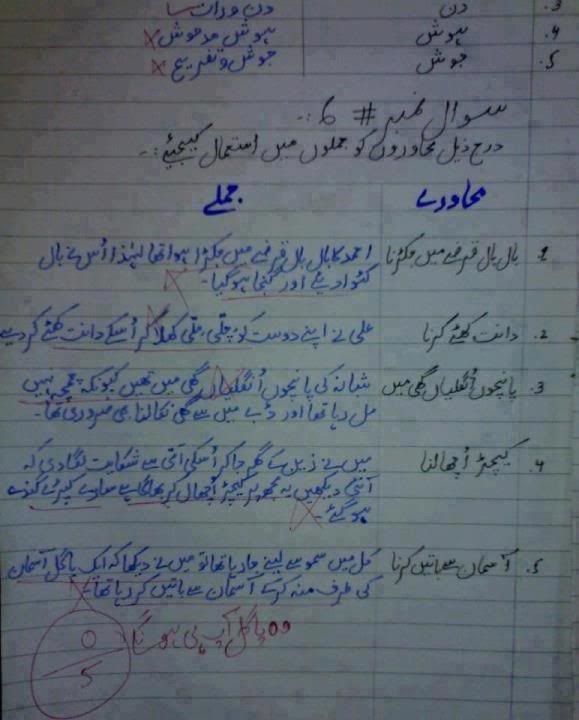 3. دن دن و رات سا
4. ہوش ہوش مدہوش
5. جوش جوش و تفریح
سوال نمبر # 6 :-
درج ذیل محاوروں کو جملوں میں استعمال کیجیئے :-
محاورے جملے
1. بال بال قرضے میں جکڑنا احمد کا بال بال قرضے میں جکڑا ہوا تھا لہٰذا اُس نے بال
کٹوا دیئے اور گنجا ہوگیا۔
2. دانت کھٹے کرنا علی نے اپنے دوست کو چٹنی، ملی کھلا کر اُسکے دانت کھٹے کر دیے
3. پانچوں اُنگلیاں گھی میں شبانہ کی پانچوں اُنگلیاں گھی میں تھیں کیونکہ چمچ نہیں
مل رہا تھا اور ڈبے میں سے گھی نکالنا بھی ضروری تھا۔
4. کیچڑ اُچھالنا میں نے زین کے گھر جا کر اُسکی آنٹی سے شکایت لگا دی کہ
آنٹی دیکھیں یہ مجھ پر کیچڑ اُچھال کر بھاگا ہے سارے کپڑے گندے
ہو گئے۔
5. آسمان سے باتیں کرنا کل میں سموسے لینے جا رہا تھا تو میں نے دیکھا کہ ایک پاگل آسمان
کی طرف منہ کرکے آسمان سے باتیں کر رہا تھا۔
وہ پاگل آپ ہی ہونگے
0
5